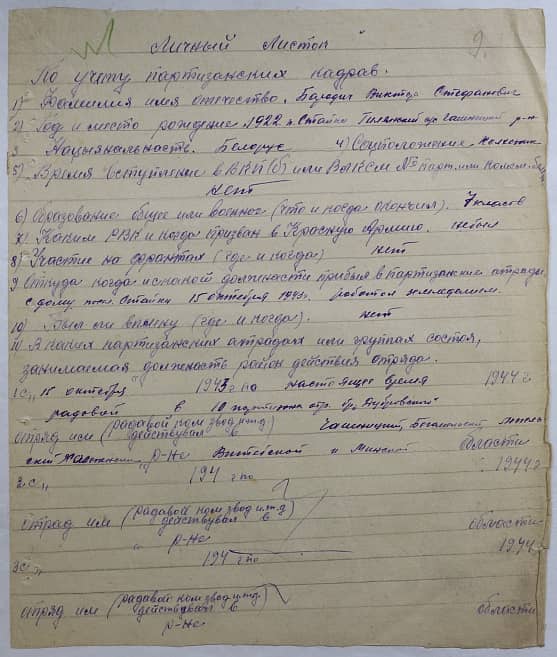 9.
Личный Листок
По учету партизанских кадрав.
1) Фамилия имя отечество. Виктор Стефанович
2) Год и место рождение 1922 р-н
3 Нацыянальность. Белорус 4) Соцположение Колхозник
5) Время вступление в ВКП(б) или ВЛКСМ № парт. или комсом.
нет
6) Образование общее или военное (что и когда окончил). 7 класов
7) Каким РВК и когда призван в Красную Армию. небыл
8) Участие на фронтах (где и когда) нет
9 Откуда когда и с какой должности прибыл в партизанские атряды.
с дому Стайки 15 октября 1943г. работал земледелием.
10) Был ли в плену (где и когда). нет
11) В каких партизанских атрадах или группах состоя,
занимаемая должность район действия отряда.
1 с „ 15 октября 1943 г по настоящее время 1944 г
радовой в 10 отр. бр. Дубровского
отряд им (радавой ком звод и т.д.
действувал в
„ р-не и Минской области
2 с „ 194 г по 1944г
отрад им (радавой ком звод и т.д
действувал в области
„ р-не
3 с „ 194 г по 1944
отряд им (радавой ком звод и т.д.
действувал в области
„ р-не